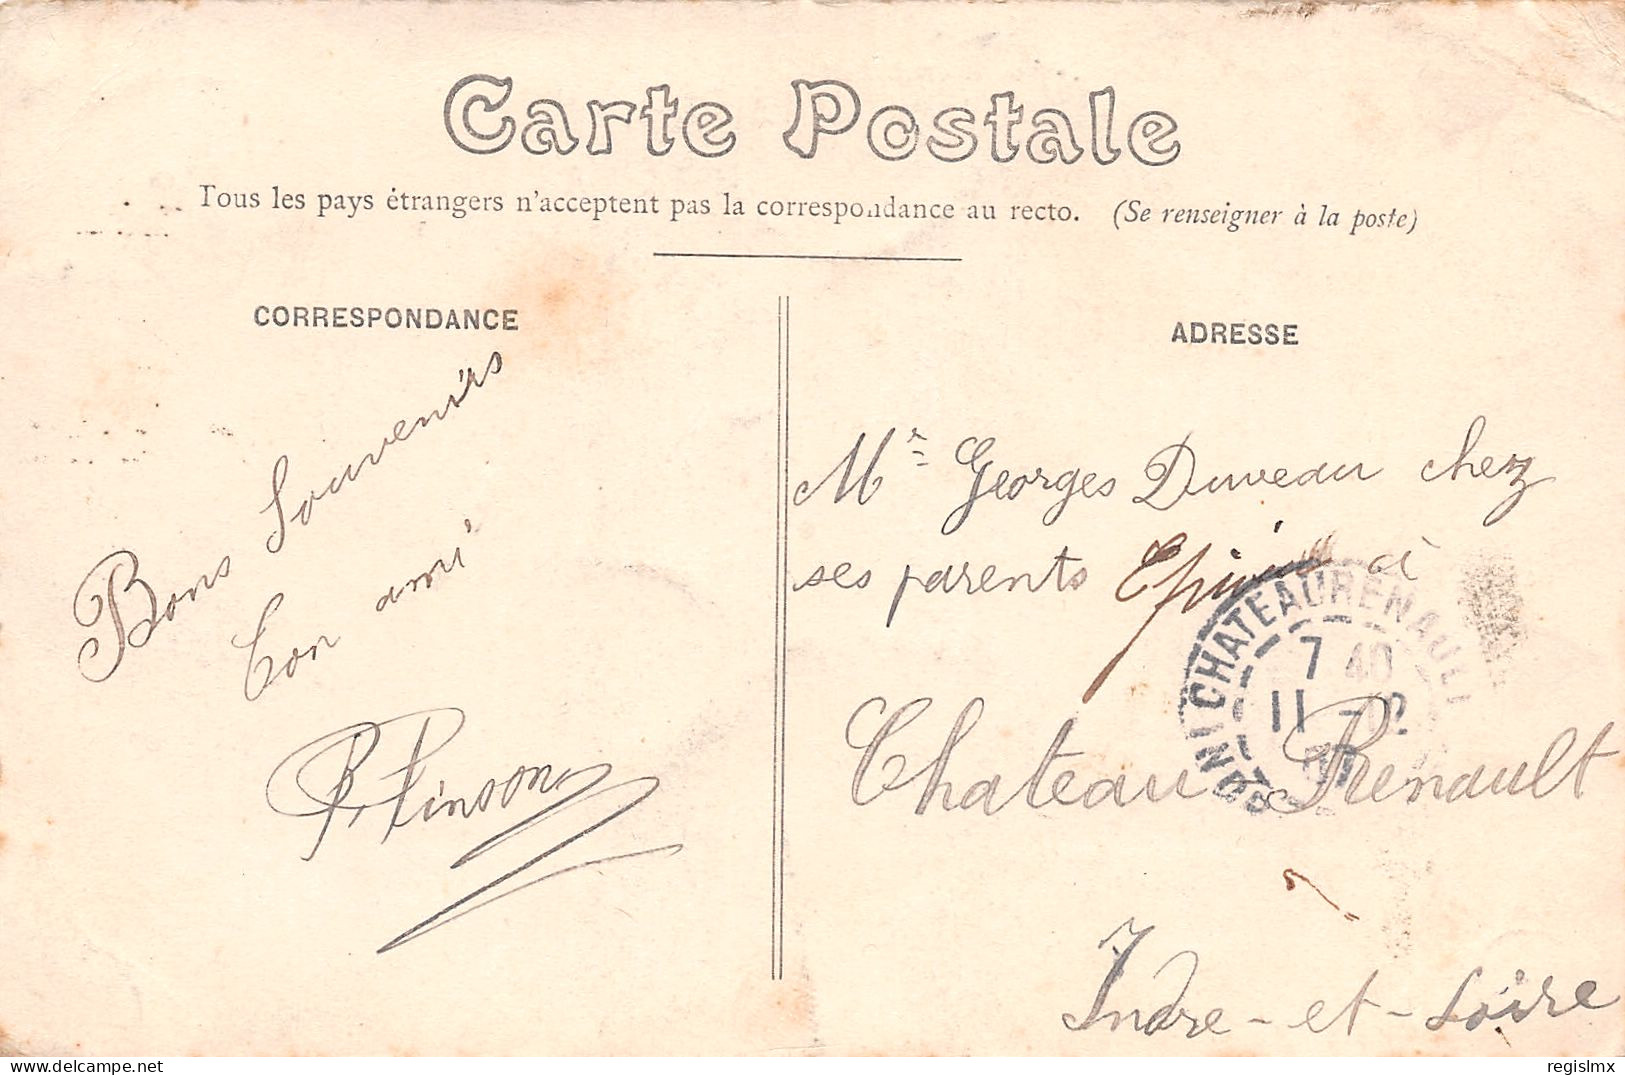 Carte Postale
Tous les pays étrangers n'acceptent pas la correspondance au recto. (Se renseigner à la poste)
CORRESPONDANCE
Bons Souvenirs
Ton ami
Pinson
ADRESSE
Mr Georges Duveau chez
ses parents à
Chateau Renault
Indre-et-Loire
CHATEAURENAULT
7 40
11
regislmx